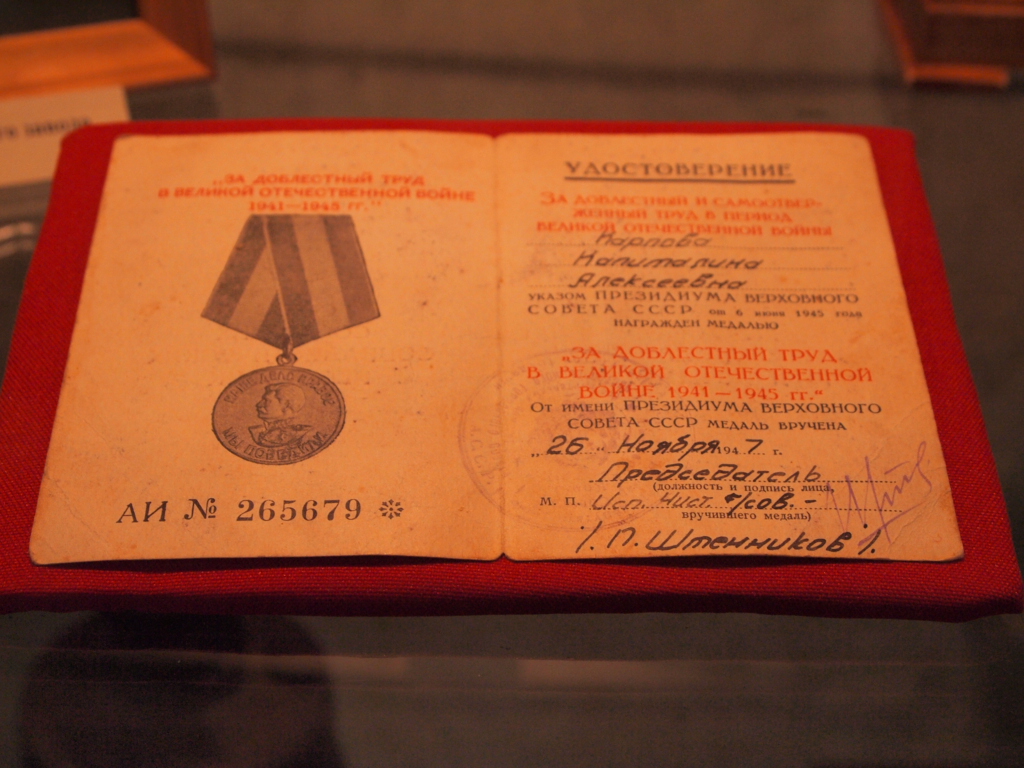 ЗАВОДА
„ЗА ДОБЛЕСТНЫЙ ТРУД
В ВЕЛИКОЙ ОТЕЧЕСТВЕННОЙ ВОЙНЕ
1941—1945 гг.“
НАШЕ ДЕЛО ПРАВОЕ
МЫ ПОБЕДИЛИ
АИ № 265679
УДОСТОВЕРЕНИЕ
ЗА ДОБЛЕСТНЫЙ И САМООТВЕР-
ЖЕННЫЙ ТРУД В ПЕРИОД
ВЕЛИКОЙ ОТЕЧЕСТВЕННОЙ ВОЙНЫ
Карпова
Капиталина
Алексеевна
УКАЗОМ ПРЕЗИДИУМА ВЕРХОВНОГО
СОВЕТА СССР от 6 июня 1945 года
НАГРАЖДЕН МЕДАЛЬЮ
„ЗА ДОБЛЕСТНЫЙ ТРУД
В ВЕЛИКОЙ ОТЕЧЕСТВЕННОЙ
ВОЙНЕ 1941—1945 гг.“
ОТ ИМЕНИ ПРЕЗИДИУМА ВЕРХОВНОГО
СОВЕТА СССР МЕДАЛЬ ВРУЧЕНА
„26“ Ноября 1947 г.
Председатель
(должность и подпись лица,
М. П. Исп. Чист. г/сов. -
вручившего медаль)
/. П. Штенников /.